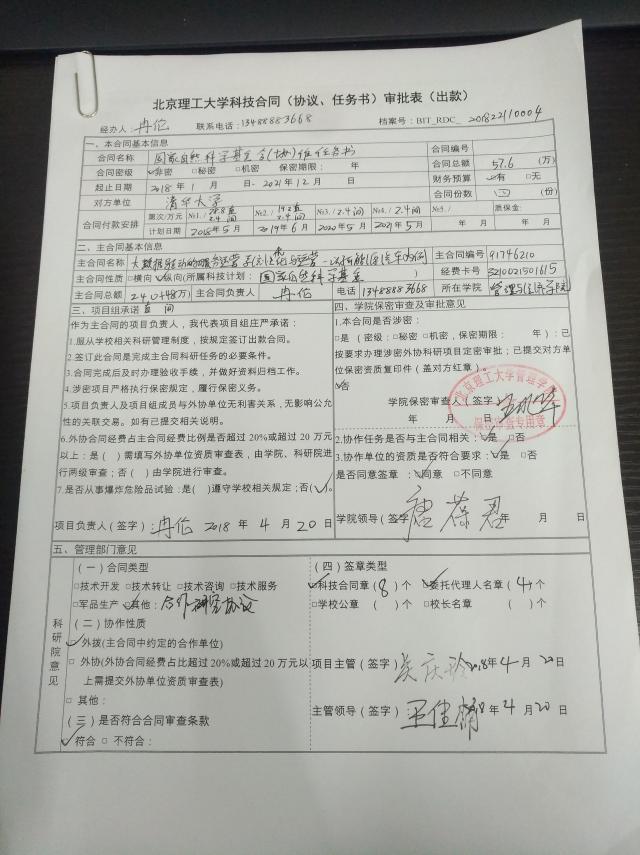 北京理工大学科技合同（协议、任务书）审批表（出款）
经办人：冉伦 联系电话：13488883668 档案号：BIT_RDC_ 201822110004
一、本合同基本信息
合同名称 国家自然科学基金 任务书 合同编号
合同密级 ☑非密 □秘密 □机密 保密期限： 年 合同总额 57.6 （万）
起止日期 2018 年 1 月 日- 2021 年 12 月 日 财务预算 ☑有 □无
对方单位 清华大学 合同份数 四 （份）
合同付款安排 第次/万元 №1./ 28.8直 2.4间 №2./ 19.2直 2.4间 №3./ 2.4间 №4./ 2.4间 №5./ 质保金:
计划日期 2018年5月 2019年6月 2020年5月 2021年5月 年 月 年 月
二、主合同基本信息
主合同名称 大数据驱动的服务运营 与运营—以 汽车为例 主合同编号 91746210
主合同性质 □横向 ☑纵向(所属科技计划： 国家自然科学基金 ) 经费卡号 3210021501615
主合同总额 240+48(万) 直 间 主合同负责人 冉伦 电话 13488883668 所在学院 管理与经济学院
三、项目组承诺
作为主合同的项目负责人，我代表项目组庄严承诺：
1.服从学校相关科研管理制度，按规定签订出款合同。
2.签订此合同是完成主合同科研任务的必要条件。
3.合同完成后及时办理验收手续，并做好资料归档工作。
4.涉密项目严格执行保密规定，履行保密义务。
5.项目负责人及项目组成员与外协单位无利害关系，无影响公允
性的关联交易。如有已提交相关说明。
6.外协合同经费占主合同经费比例是否超过 20%或超过 20 万元
以上：是（ ）需填写外协单位资质审查表，由学院、科研院进
行两级审查；否（ ）由学院进行审查。
7.是否从事爆炸危险品试验：是( )遵守学校相关规定；否(√)。
项目负责人（签字）冉伦 2018 年 4 月 20 日
四、学院保密审查及审批意见
1.本合同是否涉密：
□是（密级：□秘密 □机密，保密期限： 年）：已
按要求办理涉密外协科研项目定密审批；已提交对方单
位保密资质复印件（盖对方红章）。
☑否
学院保密审查人（签字）
年 月 日
北京理工大学管理学院
保密审查专用章
2.协作任务是否与主合同相关：☑是 □否
3.协作单位的资质是否符合要求：☑是 □否
是否同意签章：☑同意 □不同意
学院领导（签字） 年 月 日
五、管理部门意见
科研院意见
（一）合同类型
□技术开发 □技术转让 □技术咨询 □技术服务
□军品生产 ☑其他：合作研究协议
（二）协作性质
☑外拨(主合同中约定的合作单位)
□ 外协(外协合同经费占比超过 20%或超过 20 万元以
上需提交外协单位资质审查表)
□ 其他：
（三）是否符合合同审查条款
☑符合 □ 不符合：
（四）签章类型
☑科技合同章（8）个 ☑委托代理人名章（4）个
□学校公章 （ ）个 □校长名章 （ ）个
项目主管（签字） 2018年 4 月 20日
主管领导（签字） 年 4 月 20 日